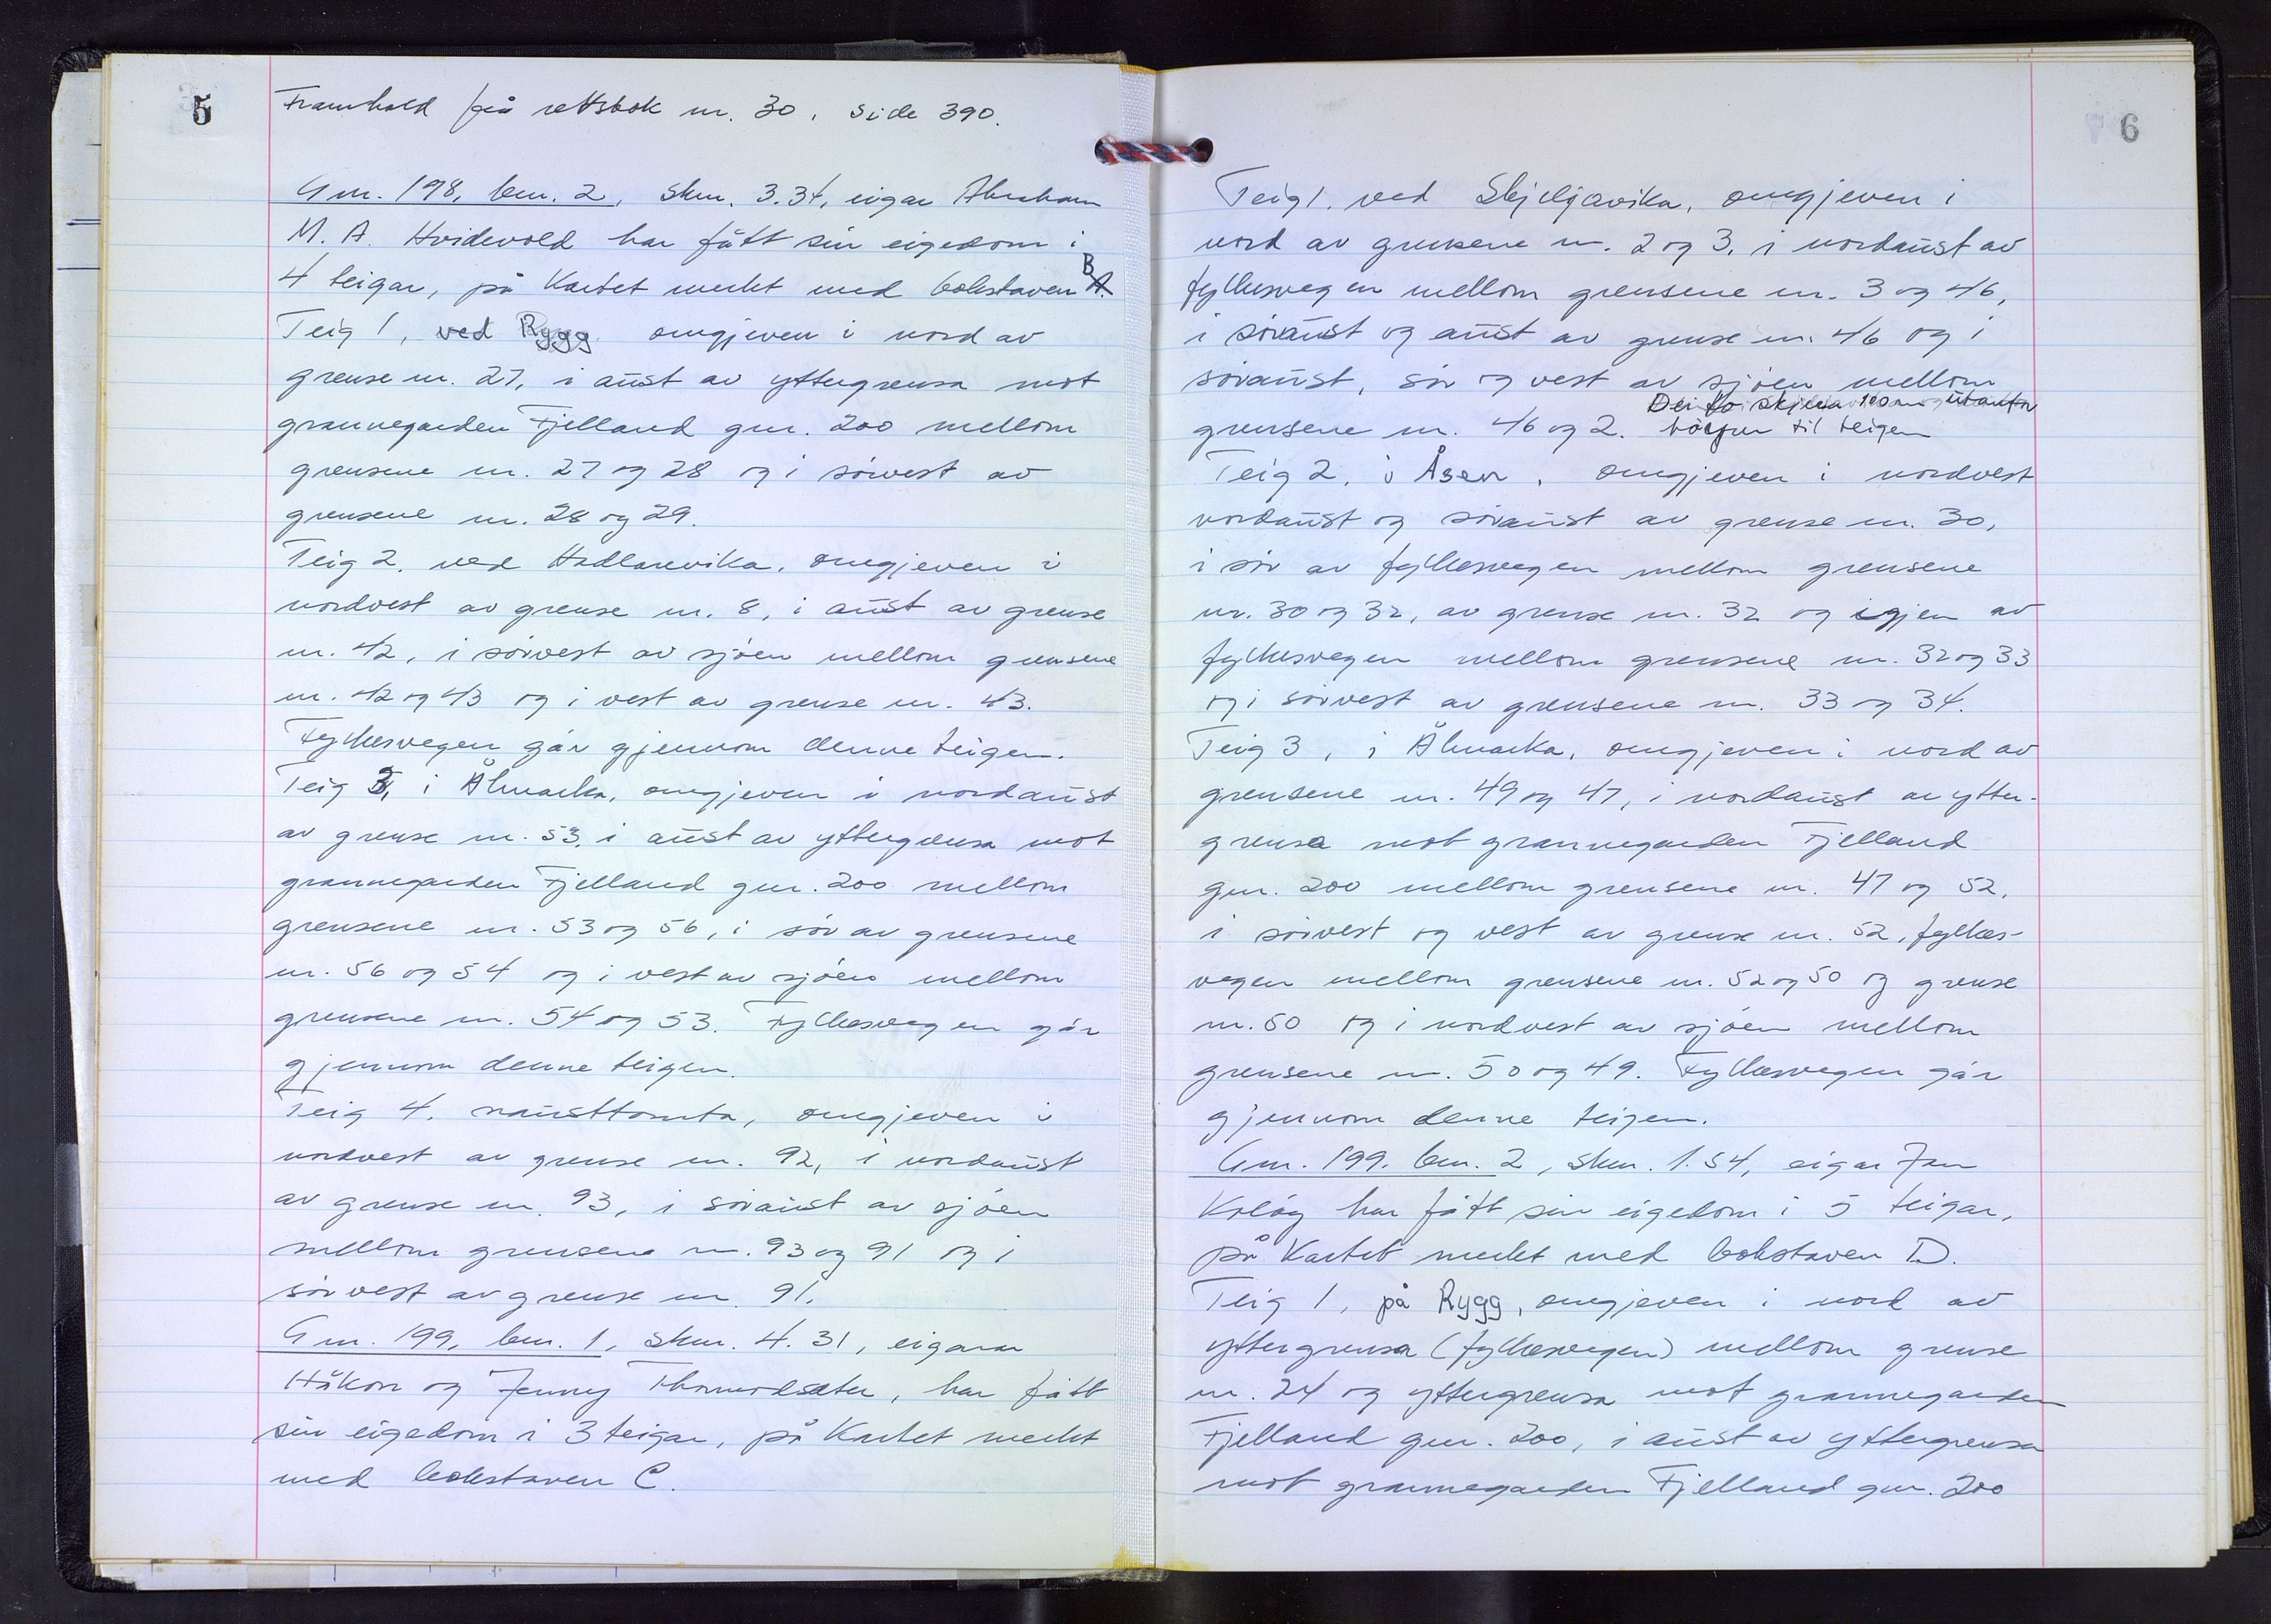 5
Framhald frå rettsbok nr. 30, side 390.
Gnr. 198, bnr. 2, skm. 3.34, eigar Abraham
M. A. Hvidevold har fått sin eigedom i
4 teigar, på kartet merkt med bokstaven B A.
Teig 1, ved Rygg omgjeven i nord av
grense nr. 27, i aust av yttergrensa mot
grannegarden Fjelland gnr. 200 mellom
grensene nr. 27 og 28 og i sørvest av
grensene nr. 28 og 29.
Teig 2, ved Hadlarevika, omgjeven i
nordvest av grense nr. 8, i aust av grense
nr. 42, i sørvest av sjøen mellom grensene
nr. 42 og 43 og i vest av grense nr. 43.
Fylkesvegen går gjennom denne teigen.
Teig 3, i Ålmarka, omgjeven i nordaust
av grense nr. 53, i aust av yttergrensa mot
grannegarden Fjelland gnr. 200 mellom
grensene nr. 53 og 56, i sør av grensene
nr. 56 og 54 og i vest av sjøen mellom
grensene nr. 54 og 53. Fylkesvegen går
gjennom denne teigen.
Teig 4, nausttomta, omgjeven i
nordvest av grense nr. 92, i nordaust
av grense nr. 93, i søraust av sjøen
mellom grensene nr. 93 og 91 og i
sørvest av grense nr. 91.
Gnr. 199, bnr. 1, skm. 4.31, eigarar
Håkon og Jenny Thormodsæter, har fått
sin eigedom i 3 teigar, på kartet merkt
med bokstaven C.
6
Teig 1, ved Skjeljavika, omgjeven i
nord av grensene nr. 2 og 3, i nordaust av
fylkesvegen mellom grensene nr. 3 og 46,
i søraust og aust av grense nr. 46 og i
søraust, sør og vest av sjøen mellom
Dei to skjera 100 m utanfor
grensene nr. 46 og 2. høyrer til teigen
Teig 2, i Åsen, omgjeven i nordvest
nordaust og søraust av grense nr. 30,
i sør av fylkesvegen mellom grensene
nr. 30 og 32, av grense nr. 32 og igjen av
fylkesvegen mellom grensene nr. 32 og 33
og i sørvest av grensene nr. 33 og 34.
Teig 3, i Ålmarka, omgjeven i nord av
grensene nr. 49 og 47, i nordaust av ytter-
grensa mot grannegarden Fjelland
gnr. 200 mellom grensene nr. 47 og 52,
i sørvest og vest av grense nr. 52, fylkes-
vegen mellom grensene nr. 52 og 50 og grense
nr. 50 og i nordvest av sjøen mellom
grensene nr. 50 og 49. Fylkesvegen går
gjennom denne teigen.
Gnr. 199, bnr. 2, skm. 1.54, eigar Jan
har fått sin eigedom i 5 teigar,
på kartet merkt med bokstaven D.
Teig 1, på Rygg, omgjeven i nord av
yttergrensa (fylkesvegen) mellom grense
nr. 24 og yttergrensa mot grannegarden
Fjelland gnr. 200, i aust av yttergrensa
mot grannegarden Fjelland gnr. 200